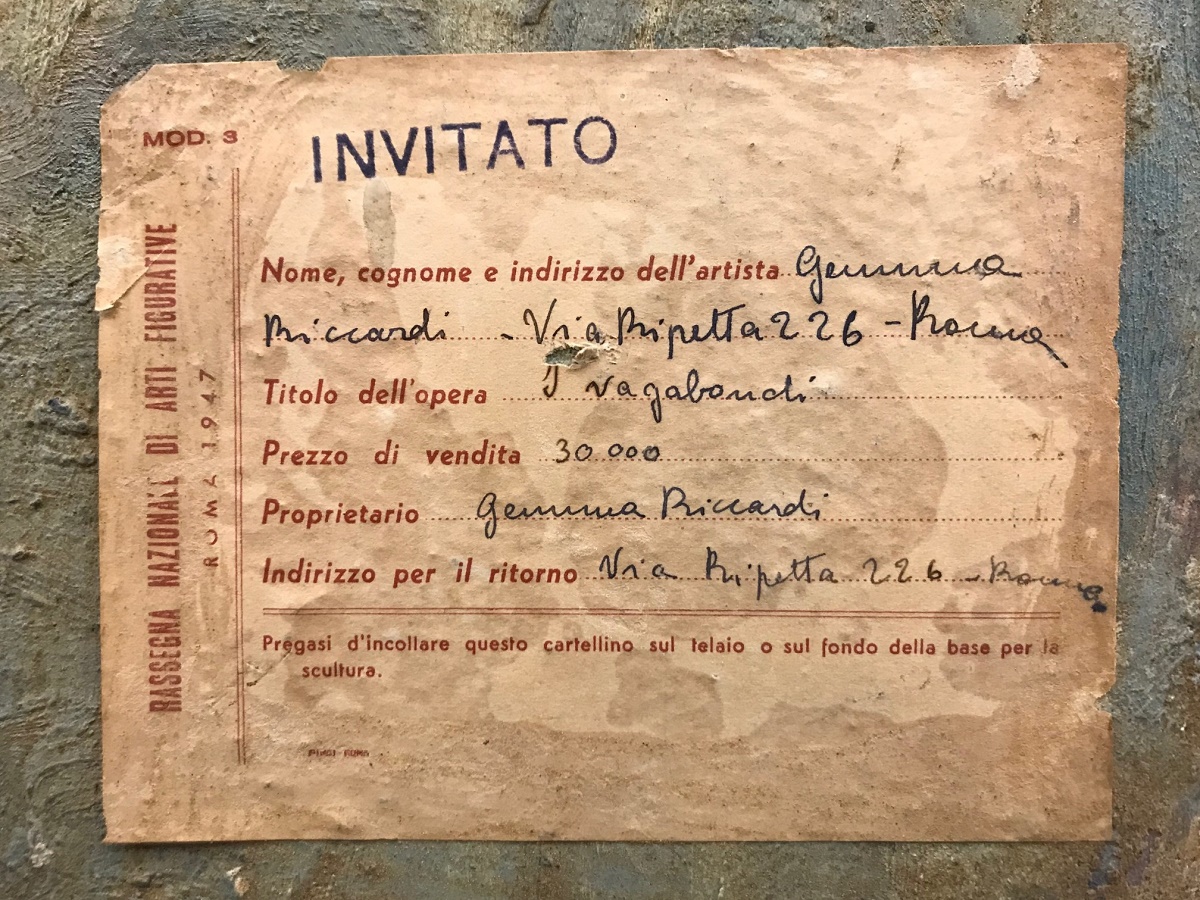 MOD. 3
INVITATO
RASSEGNA NAZIONALE DI ARTI FIGURATIVE
ROMA 1947
Nome, cognome e indirizzo dell'artista Gemma
Riccardi - Via Ripetta 226 - Roma
Titolo dell'opera I vagabondi
Prezzo di vendita 30000
Proprietario Gemma Riccardi
Indirizzo per il ritorno Via Ripetta 226 - Roma
Pregasi d'incollare questo cartellino sul telaio o sul fondo della base per la
scultura.
ROMA